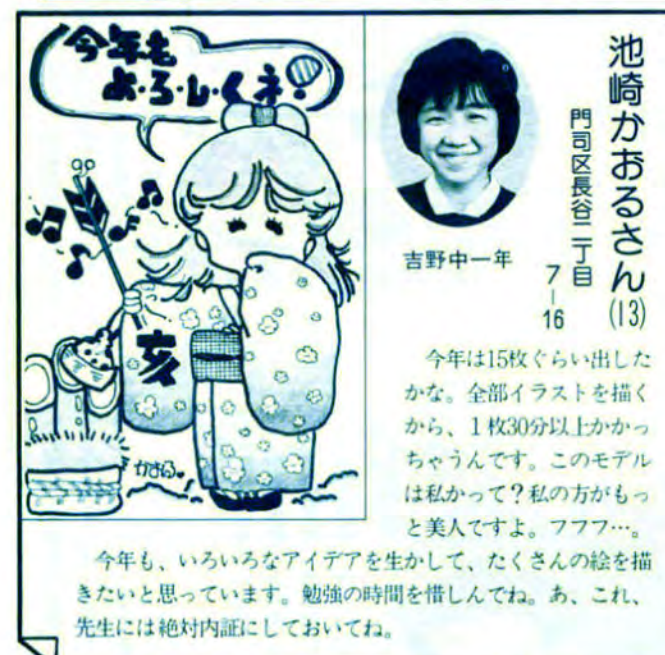 今年も
よ・ろ・し・くネ!
亥
かおる
池崎かおるさん(13)
門司区長谷二丁目
7-16
吉野中一年
今年は15枚ぐらい出した
かな。全部イラストを描く
から、1枚30分以上かかっ
ちゃうんです。このモデル
は私かって?私の方がもっ
と美人ですよ。フフフ…。
今年も、いろいろなアイデアを生かして、たくさんの絵を描
きたいと思っています。勉強の時間を惜しんでね。あ、これ、
先生には絶対内証にしておいてね。